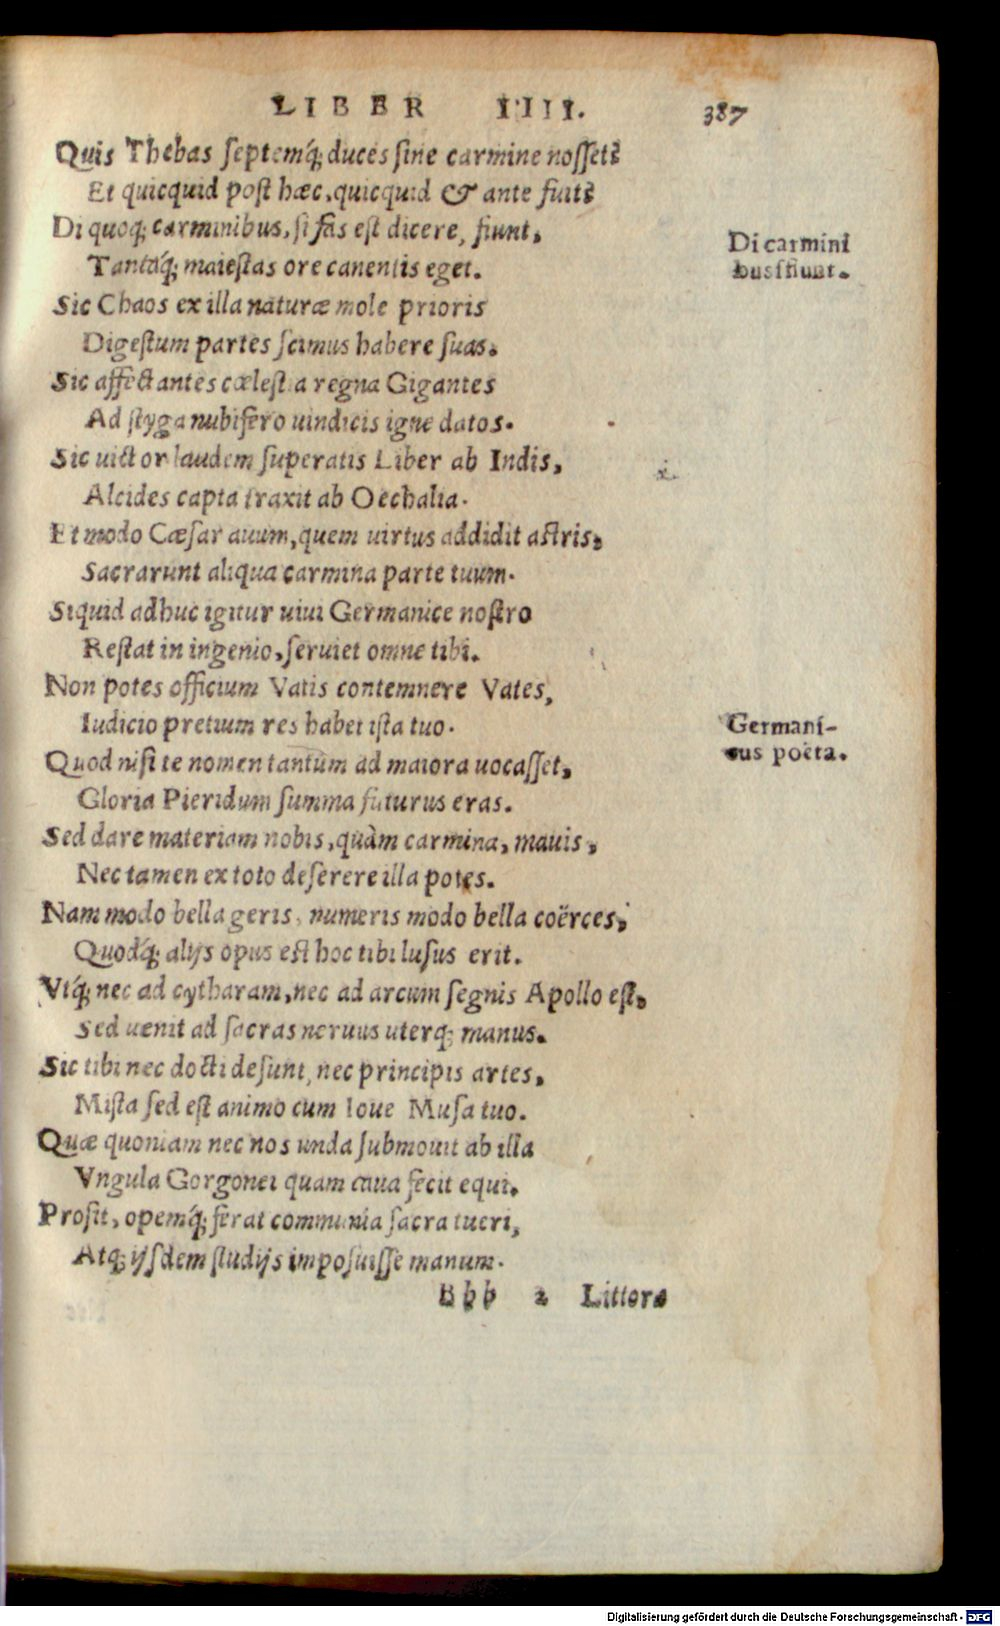 LIBER IIII. 387
Quis Thebas ſeptemq́; duces ſine carmine noſſet?
Et quicquid poſt hæc, quicquid & ante fuit?
Di quoq; carminibus, ſi fas eſt dicere, fiunt,
Di carmini
Tantaq́; maieſtas ore canentis eget.
bus fiunt.
Sic Chaos ex illa naturæ mole prioris
Digeſtum partes ſcimus habere ſuas.
Sic affectantes cœleſtia regna Gigantes
Ad ſtyga nubifero uindicis igne datos.
Sic uictor laudem ſuperatis Liber ab Indis,
Alcides capta traxit ab Oechalia.
Et modo Cæſar auum, quem uirtus addidit aſtris,
Sacrarunt aliqua carmina parte tuum.
Siquid adhuc igitur uiui Germanice noſtro
Reſtat in ingenio, ſeruiet omne tibi.
Non potes officium Vatis contemnere Vates,
Iudicio pretium res habet iſta tuo.
Germani-
Quod niſi te nomen tantum ad maiora uocaſſet,
cus poëta.
Gloria Pieridum ſumma futurus eras.
Sed dare materiam nobis, quàm carmina, mauis,
Nec tamen ex toto deſerere illa potes.
Nam modo bella geris, numeris modo bella coërces,
Quodq́; alijs opus eſt hoc tibi luſus erit.
Vtq́; nec ad cytharam, nec ad arcum ſegnis Apollo eſt,
Sed uenit ad ſacras neruus uterq; manus.
Sic tibi nec docti deſunt, nec principis artes,
Miſta ſed eſt animo cum Ioue Muſa tuo.
Quæ quoniam nec nos unda ſubmouit ab illa
Vngula Gorgonei quam caua fecit equi.
Proſit, opemq́; ferat communia ſacra tueri,
Atq; ijſdem ſtudijs impoſuiſſe manum.
Bbb 2 Littora
Digitalisierung gefördert durch die Deutsche Forschungsgemeinschaft - DFG